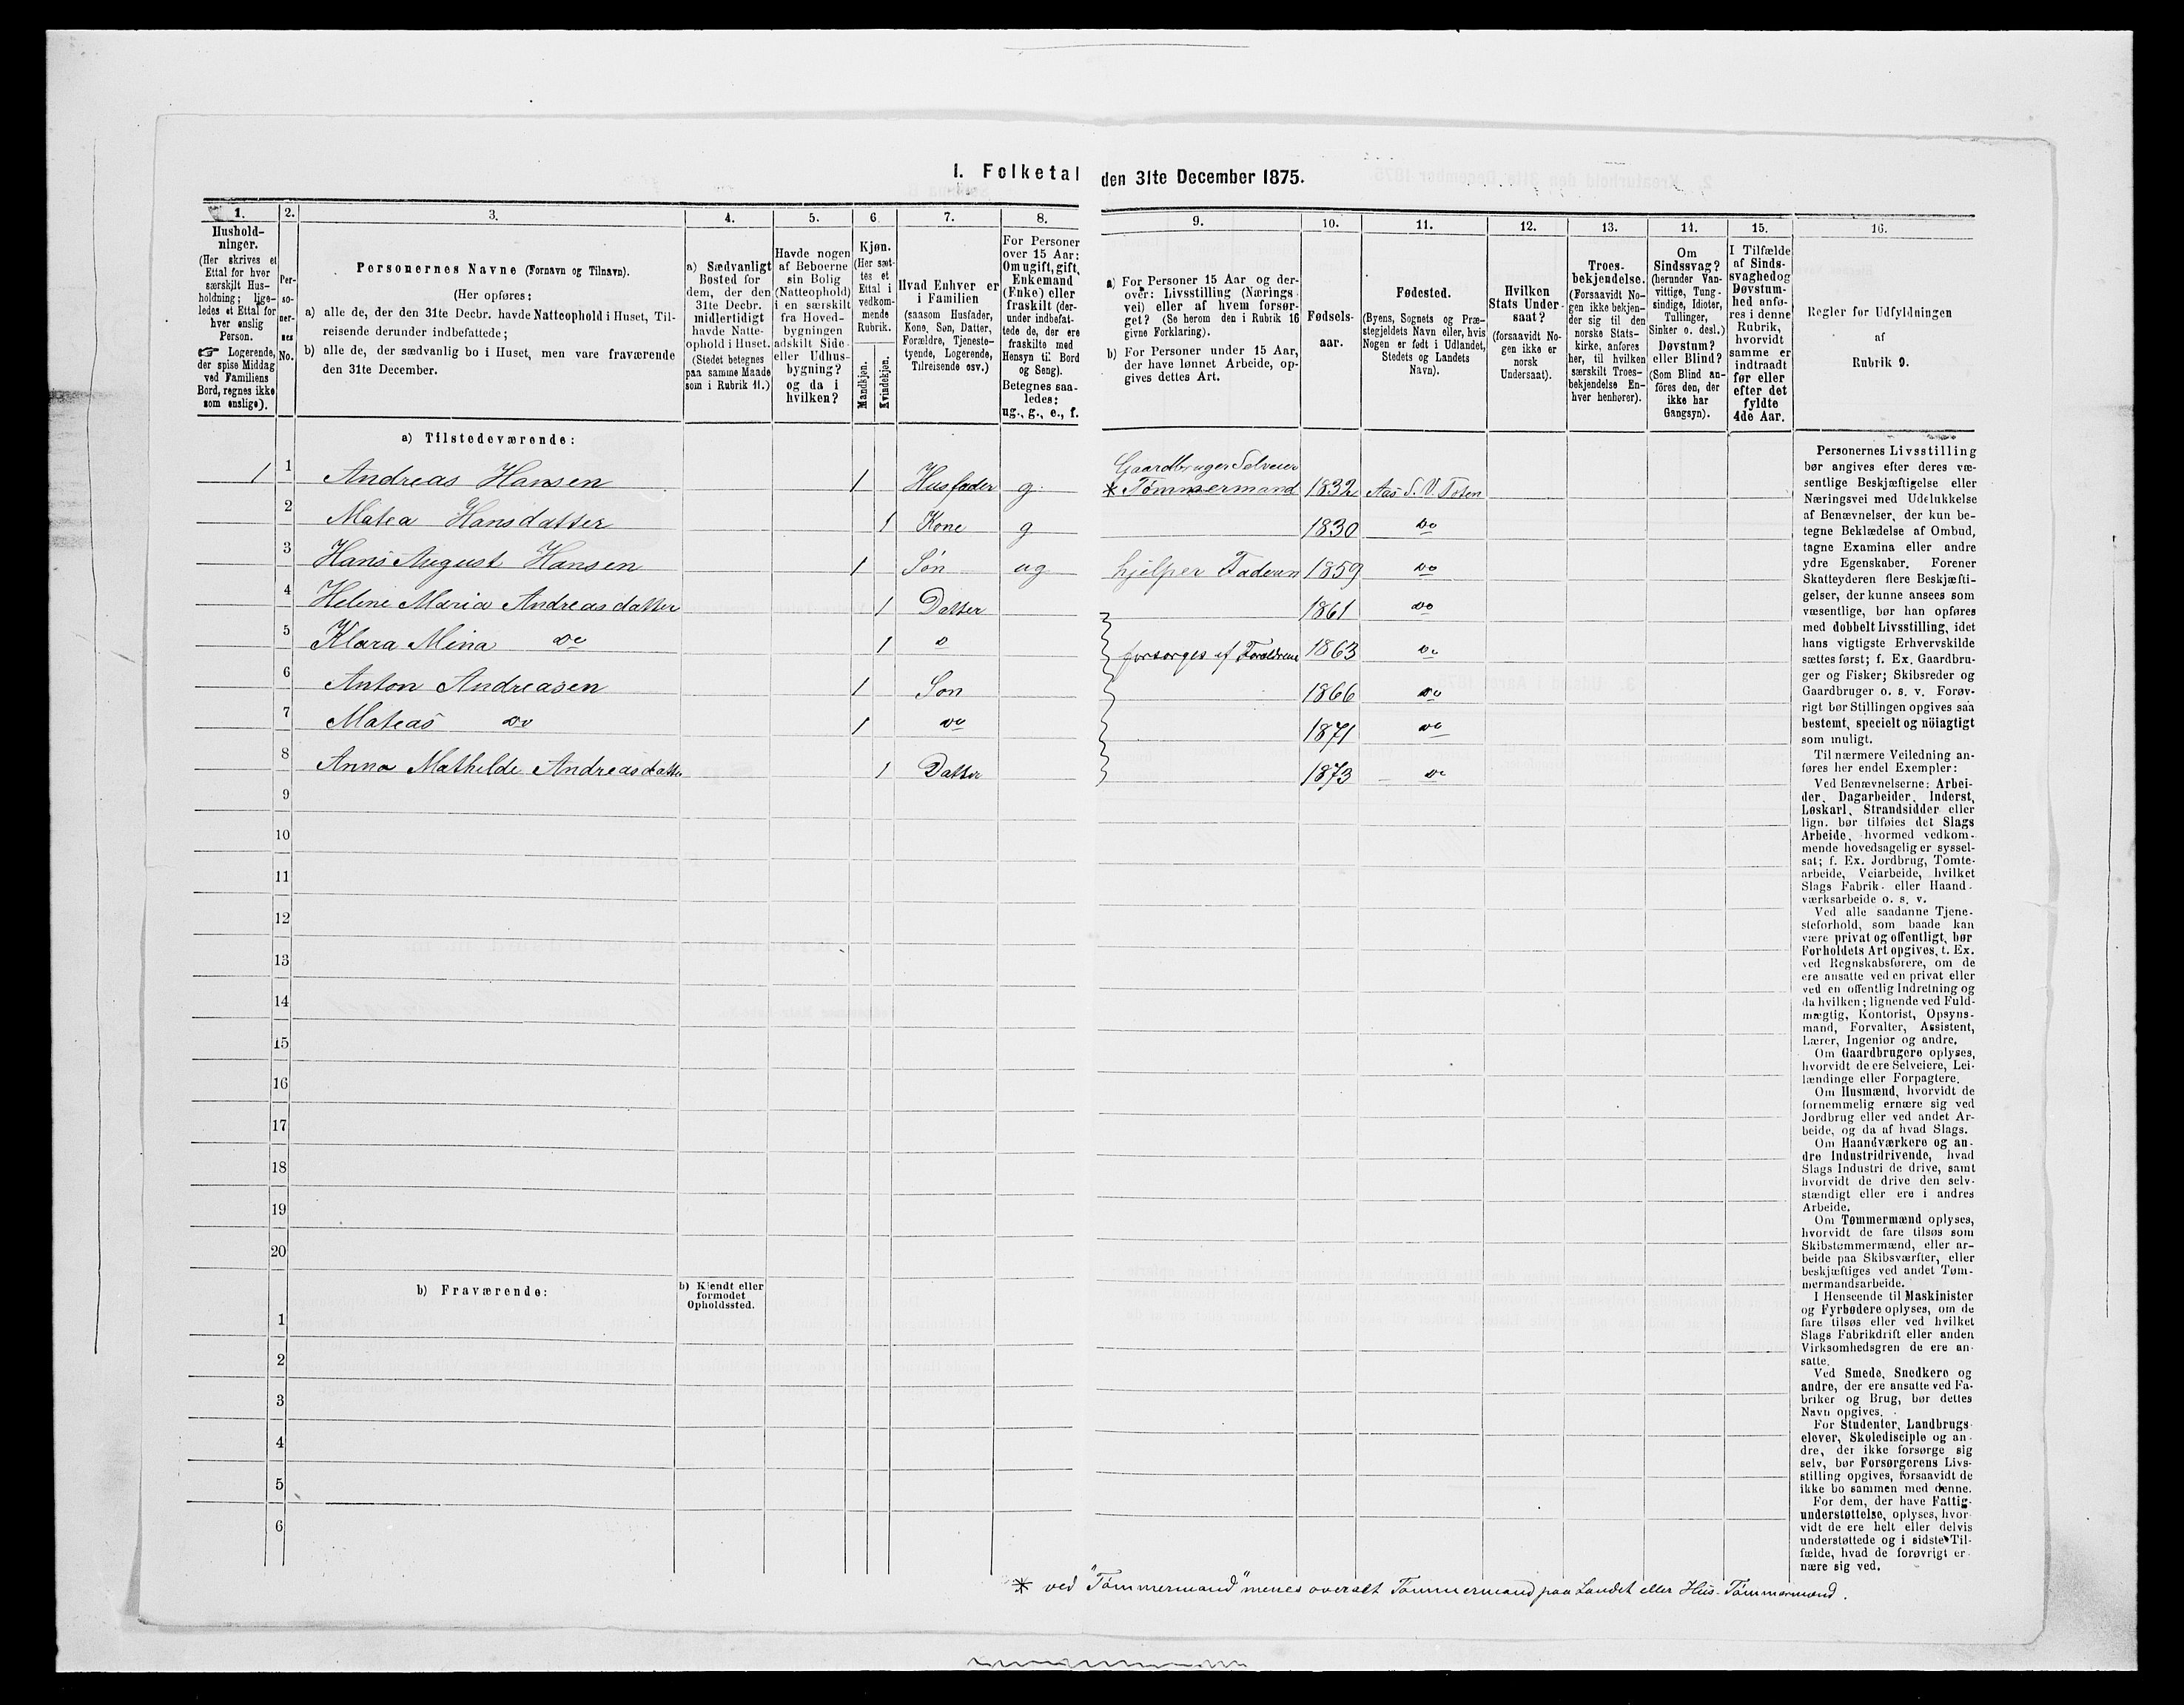 I. Folketal den 31te December 1875.
1.
Hushold-
ninger.
(Her skrives et
Ettal for hver
særskilt Hus-
holdning; lige-
ledes et Ettal for
hver enslig
Person.
☞ Logerende,
der spise Middag
ved Familiens
Bord, regnes ikke
som enslige).
2.
Per-
so-
ner-
nes
No.
3.
Personernes Navne (Fornavn og Tilnavn).
(Her opføres:
a) alle de, der den 31te Decbr. havde Natteophold i Huset, Til-
reisende derunder indbefattede;
b) alle de, der sædvanlig bo i Huset, men vare fraværende
den 31te December.
4.
a) Sædvanligt
Bosted for
dem, der den
31te Decbr.
midlertidigt
havde Natte-
ophold i Huset.
(Stedet betegnes
paa samme Maade
som i Rubrik 11.)
5.
Havde nogen
af Beboerne
sin Bolig
(Natteophold)
i en særskilt
fra Hoved-
bygningen
adskilt Side-
eller Udhus-
bygning?
og da i
hvilken?
6.
Kjøn.
(Her sæt-
tes et
Ettal i
vedkom-
mende
Rubrik.
Mandkjøn.
Kvindekjøn.
7.
Hvad Enhver er
i Familien
(saasom Husfader,
Kone, Søn, Datter,
Forældre, Tjeneste-
tyende, Logerende,
Tilreisende osv.)
8.
For Personer
over 15 Aar:
Om ugift, gift,
Enkemand
(Enke) eller
fraskilt (der-
under indbefat-
tede de, der ere
fraskilte med
Hensyn til Bord
og Seng).
Betegnes saa-
ledes:
ug., g., e., f.
9.
a) For Personer 15 Aar og der-
over: Livsstilling (Nærings-
vei) eller af hvem forsør-
get? (Se herom den i Rubrik 16
givne Forklaring).
b) For Personer under 15 Aar,
der have lønnet Arbeide, op-
gives dettes Art.
10.
Fødsels-
aar.
11.
Fødested.
(Byens, Sognets og Præ-
stegjeldets Navn eller, hvis
Nogen er født i Udlandet,
Stedets og Landets
Navn).
12.
Hvilken
Stats Under-
saat?
(forsaavidt No-
gen ikke er
norsk
Undersaat).
13.
Troes-
bekjendelse.
(Forsaavidt No-
gen ikke bekjen-
der sig til den
norske Stats-
kirke, anføres
her, til hvilken
særskilt Troes-
bekjendelse En-
hver henhører).
14.
Om
Sindssvag?
(herunder Van-
vittige, Tung-
sindige, Idioter,
Tullinger,
Sinker o. desl.)
Døvstum?
eller Blind?
(Som Blind an-
föres den, der
ikke har
Gangsyn).
15.
I Tilfælde
af Sinds-
svaghed og
Døvstum-
hed anfø-
res i denne
Rubrik,
hvorvidt
samme er
indtraadt
før eller
efter det
fyldte
4de Aar.
16.
Regler for Udfyldningen
af
Rubrik 9.
a) Tilstedeværende:
1 1 Andreas Hansen 1 Husfader g. Gaardbruger Selveier
* Tömmermand 1832 Aas S. V. Toten
2 Matea Hansdatter 1 Kone g 1830 do
3 Hans August Hansen 1 Søn ug hjelper Faderen 1859 do
4 Helene Maria Andreasdatter 1 Datter 1861 do
5 Klara Mina do 1 d forsorges af Forældrene 1863 do
6 Anton Andreasen 1 Son 1866 do
7 Mateas do 1 do 1871 do
8 Anna Mathilde Andreasdatter 1 Datter 1873 do
9
10
11
12
13
14
15
16
17
18
19
20
b) Fraværende:
b) Kjendt eller
formodet
Opholdssted.
1
2
3
4
5
6
Personernes Livsstilling
bør angives efter deres væ-
sentlige Beskjæftigelse eller
Næringsvei med Udelukkelse
af Benævnelser, der kun be-
tegne Beklædelse af Ombud,
tagne Examina eller andre
ydre Egenskaber. Forener
Skatteyderen flere Beskjæfti-
gelser, der kunne ansees som
væsentlige, bør han opføres
med dobbelt Livsstilling, idet
hans vigtigste Erhvervskilde
sættes først; f. Ex. Gaardbru-
ger og Fisker; Skibsreder og
Gaardbruger o. s. v. Forøv-
rigt bør Stillingen opgives saa
bestemt, specielt og nöiagtigt
som muligt.
Til nærmere Veiledning an-
føres her endel Exempler:
Ved Benævnelserne: Arbei-
der, Dagarbeider, Inderst,
Løskarl, Strandsidder eller
lign. bør tilføies det Slags
Arbeide, hvormed vedkom-
mende hovedsagelig er syssel-
sat; f. Ex. Jordbrug, Tomte-
arbeide, Veiarbeide, hvilket
Slags Fabrik- eller Haand-
værksarbeide o. s. v.
Ved alle saadanne Tjene-
steforhold, som baade kan
være privat og offentligt, bør
Forholdets Art opgives, t. Ex.
ved Regnskabsførere, om de
ere ansatte ved en privat eller
ved en offentlig Indretning og
da hvilken; lignende ved Fuld-
mægtig, Kontorist, Opsyns-
mand, Forvalter, Assistent,
Lærer, Ingeniør og andre.
Om Gaardbrugere oplyses,
hvorvidt de ere Selveiere, Lei-
lændinge eller Forpagtere.
Om Husmænd, hvorvidt de
fornemmelig ernære sig ved
Jordbrug eller ved andet Ar-
beide, og da af hvad Slags.
Om Haandværkere og an-
dre Industridrivende, hvad
Slags Industri de drive, samt
hvorvidt de drive den selv-
stændigt eller ere i andres
Arbeide.
Om Tømmermænd oplyses,
hvorvidt de fare tilsøs som
Skibstømmermænd, eller ar-
beide paa Skibsværfter, eller
beskjæftiges ved andet Tøm-
mermandsarbeide.
I Henseende til Maskinister
og Fyrbødere oplyses, om de
fare tilsøs eller ved hvilket
Slags Fabrikdrift eller anden
Virksomhedsgren de ere an-
satte.
Ved Smede, Snedkere og
andre, der ere ansatte ved Fa-
briker og Brug, bør dettes
Navn opgives.
For Studenter, Landbrugs-
elever, Skoledisciple og an-
dre, der ikke forsørge sig
selv, bør Forsørgerens Livs-
stilling opgives, forsaavidt de
ikke bo sammen med denne.
For dem, der have Fattig-
understøttelse, oplyses, hvor-
vidt de ere helt eller delvis
understøttede og i sidste Til-
fælde, hvad de forøvrigt er-
nære sig ved.
* ved "Tömmermand" menes overalt Tømmermand paa Landet eller Hus-Tömmermand.